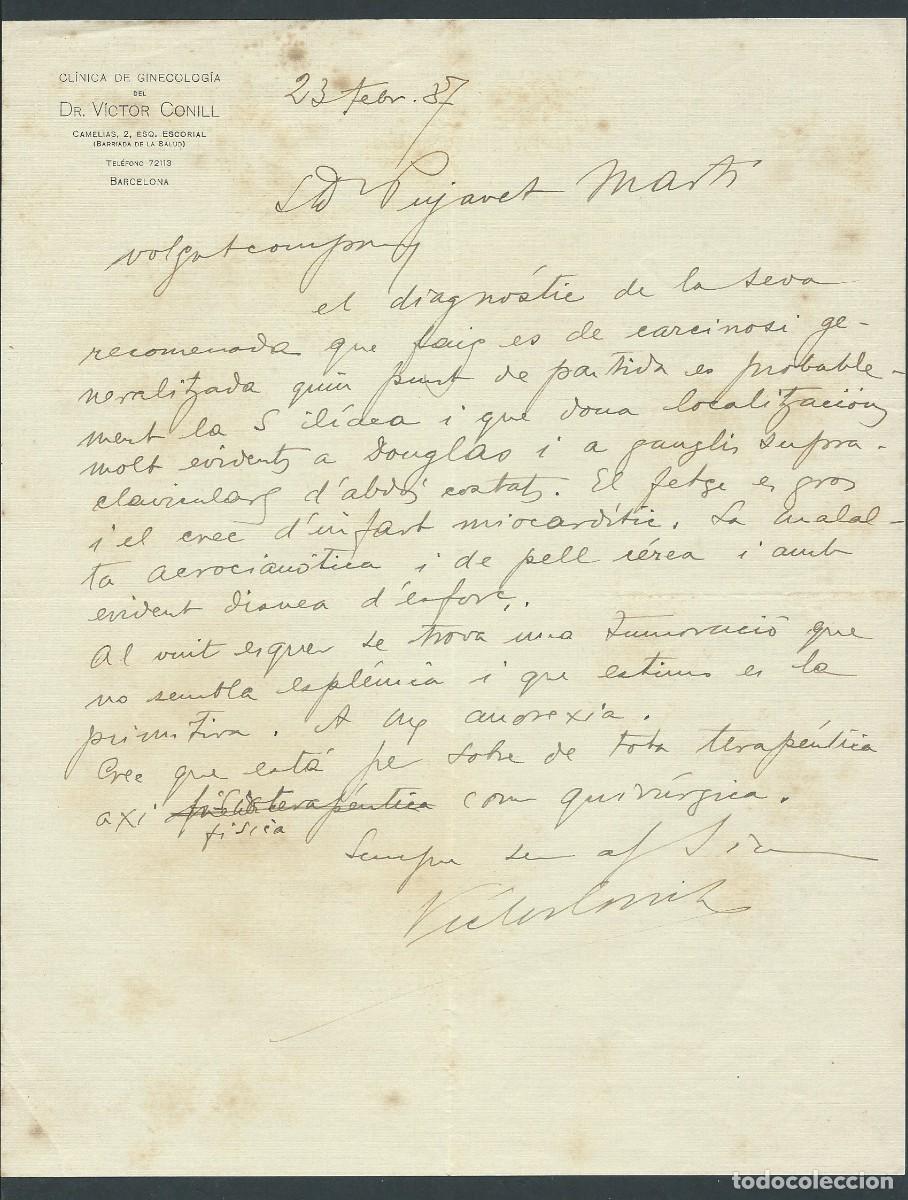 CLÍNICA DE GINECOLOGÍA
DEL
DR. VÍCTOR CONILL
CAMELIAS, 2, ESQ. ESCORIAL
(BARRIADA DE LA SALUD)
TELÉFONO 72113
BARCELONA
23 febr. 37
Dr Pujavet Marti
volgut company
el diagnóstic de la seva
recomenada que faig es de carcinosi ge-
neralitzada quin punt de partida es probable-
ment la S ilídea i que dona localitzacions
molt evidents a Douglas i a ganglis supra-
claviculars d'abdós costats. El fetge es gros
i el crec d'infart miocardític. La malal-
ta acrocianòtica i de pell cérea i amb
evident disnea d'esforç.
Al vuit esquer se trova una tumoració que
no sembla esplénica i que estimo es la
primitiva. A anorexia.
Crec que está per sobre de tota terapéutica
axi física com quirúrgica.
Sempre seu af
Victor Conill
todocoleccion